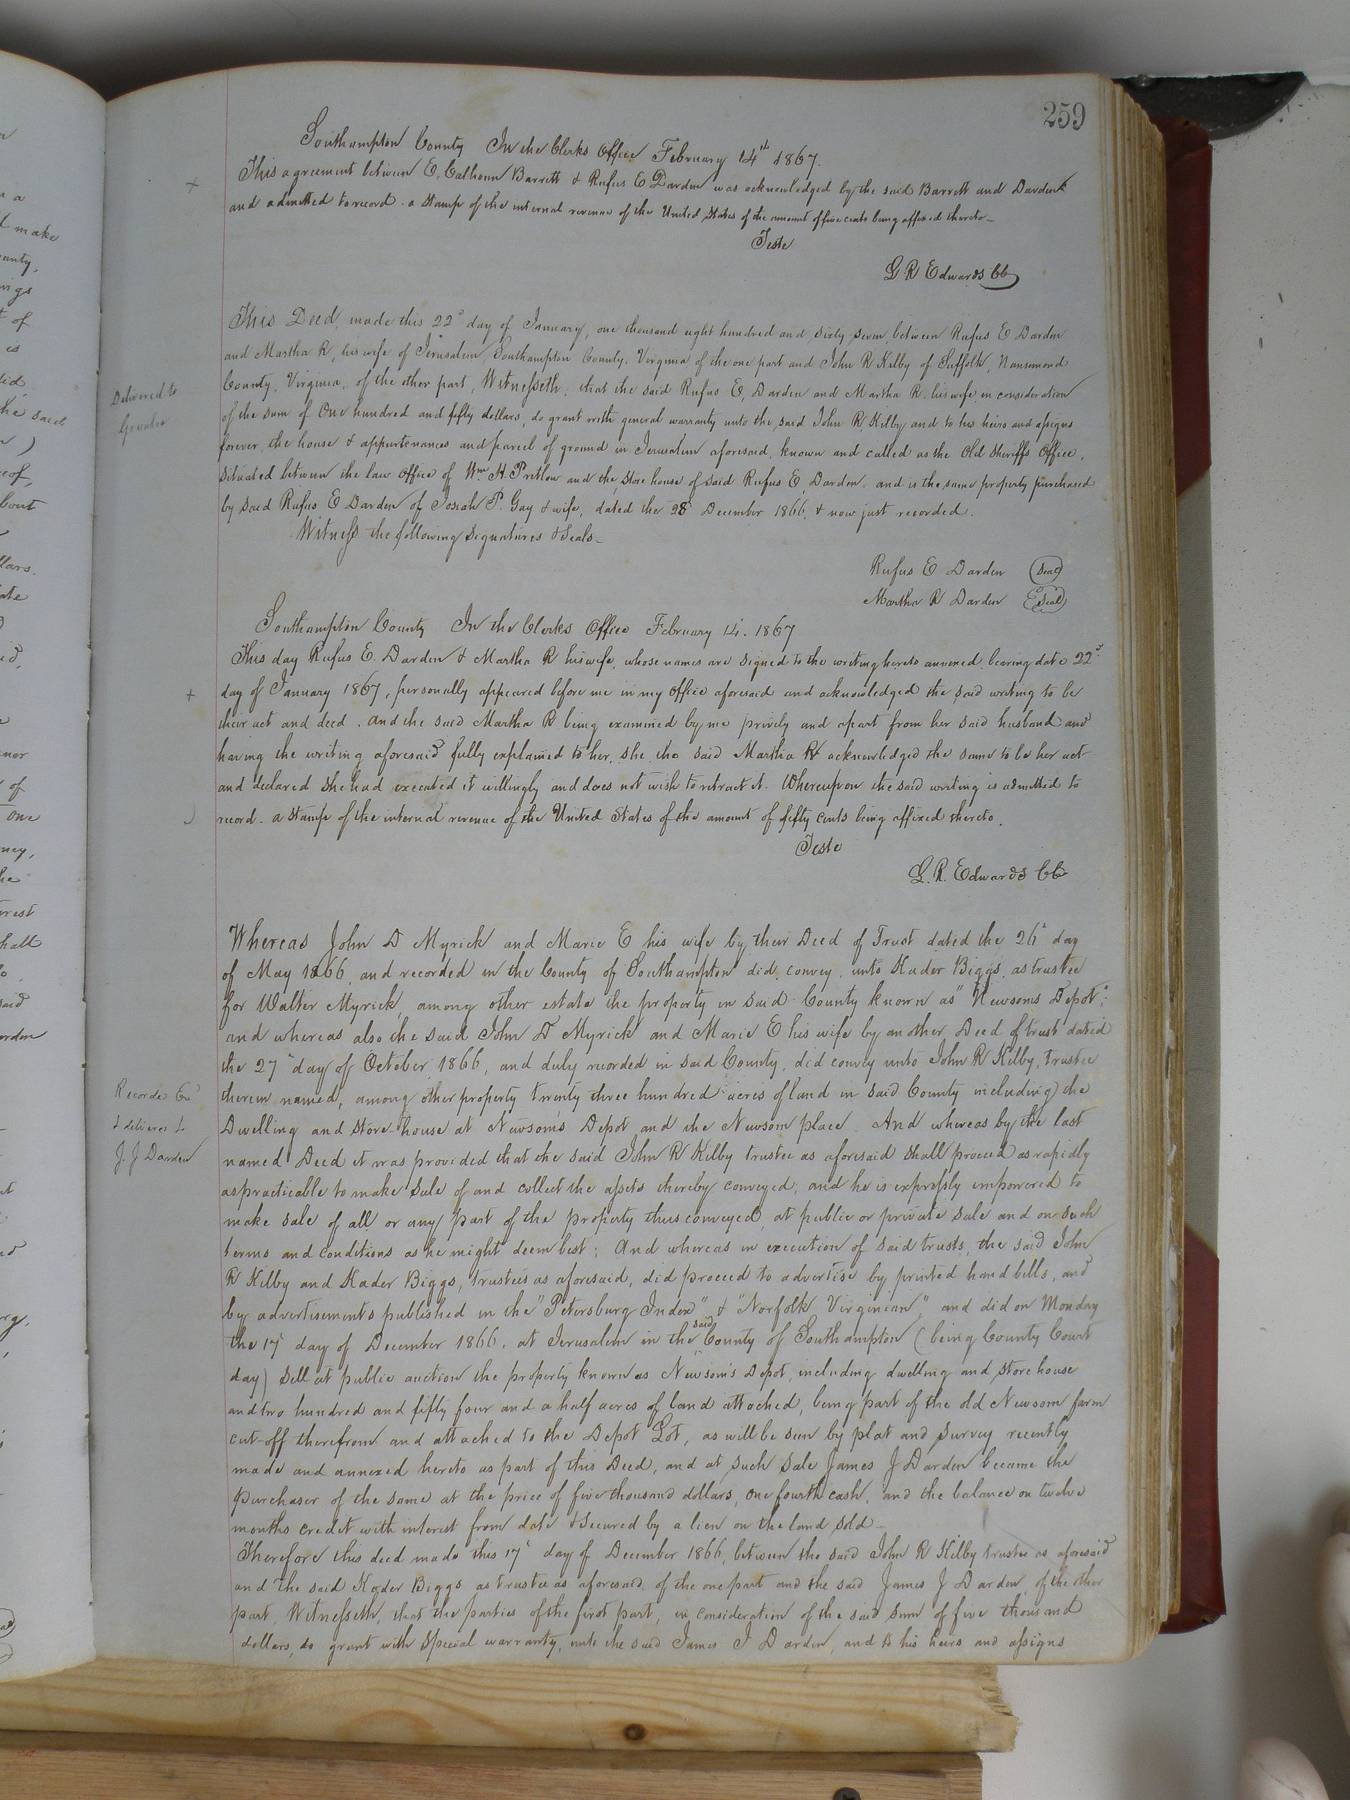 259
Southampton County In the Clerks Office February 14th 1867.
This agreement between E. Calhoun Barrett & Rufus E Darden was acknowledged by the said Barrett and Darden
and admitted to record. a Stamp of the internal revenue of the United States of the amount of five cents being affixed thereto
Teste
G R Edwards CC
This Deed, made this 22d day of January, one thousand eight hundred and sixty seven between Rufus E Darden
and Martha R, his wife of Jerusalem Southampton County, Virginia of the one part and John R Kilby of Suffolk, Nansemond
Delivered to
County, Virginia, of the other part, Witnesseth, that the said Rufus E, Darden and Martha R. his wife, in consideration
of the sum of One hundred and fifty dollars, do grant with general warranty unto the said John R Kilby and to his heirs and assigns
forever, the house & appurtenances and parcel of ground in Jerusalem aforesaid, known and called as the Old Sheriffs Office,
Situated between the law office of Wm H. Pretlow and the, Store house of said Rufus E, Darden. and is the same property purchased
by said Rufus E Darden of Josiah P. Gay & wife, dated the 28 December 1866, & now just recorded.
Witness the following signatures & Seals-
Rufus E Darden (Seal)
Martha R Darden (Seal)
Southampton County In the Clerks Office February 14. 1867
This day Rufus E. Darden & Martha R his wife, whose names are signed to the writing hereto annexed bearing date 22d
day of January 1867, personally appeared before me in my Office aforesaid and acknowledged the said writing to be
their act and deed. and the said Martha R being examined by me privily and apart from her said husband and
having the writing aforesaid fully explained to her, she the said Martha R acknowledged the same to be her act
and declared She had executed it willingly and does not wish to retract it. Whereupon the said writing is admitted to
record. a Stamp of the internal revenue of the United States of the amount of fifty cents being affixed thereto.
Teste
G. R. Edwards CC
Whereas John D Myrick and Marie E his wife by their Deed of Trust dated the 26" day
of May 1866, and recorded in the County of Southampton did, convey, unto Kader Biggs, as trustee
for Walter Myrick, among other estate the property in said County known as "Newsoms Depot";
and whereas also the said John D Myrick and Marie E his wife by another, Deed of trust dated
the 27" day of October 1866, and duly recorded in said County, did convey unto John R Kilby, trustee
therein named, among other property twenty three hundred acres of land in said County including the
Dwelling and store-house at Newsom's Depot and the Newsom place. And whereas by the last
Recorded
& delivered to
J. J Darden
named Deed it was provided that the said John R Kilby trustee as aforesaid shall proceed as rapidly
as practicable to make Sale of and collect the assets thereby conveyed, and he is expressly empowered to
make sale of all or any part of the property thus conveyed, at public or private sale and on such
terms and conditions as he might deem best; And whereas in execution of said trusts, the said John
R Kilby and Kader Biggs, trustees as aforesaid, did proceed to advertise by printed hand bills, and
by advertisements published in the "Petersburg Index" & "Norfolk Virginian", and did on Monday
the 17" day of December 1866, at Jerusalem in the said County of Southampton (being County Court
day) Sell at public auction the property known as Newsom's Depot, including dwelling and store house
and two hundred and fifty four and a half acres of land attached, being part of the old Newsom farm
cut-off therefrom and attached to the Depot Lot, as will be seen by plat and survey recently
made and annexed hereto as part of this Deed, and at such sale James J Darden became the
purchaser of the same at the price of five thousand dollars, one fourth cash, and the balance on twelve
months credit with interest from date & secured by a lien on the land sold-
Therefore this deed made this 17" day of December 1866, between the said John R Kilby trustee as aforesaid
and the said Kader Biggs as trustee as aforesaid, of the one part and the said James J Darden, of the other
part, Witnesseth, that the parties of the first part, in consideration of the said sum of five thousand
dollars, do grant with Special warranty, unto the said James J Darden, and to his heirs and assigns